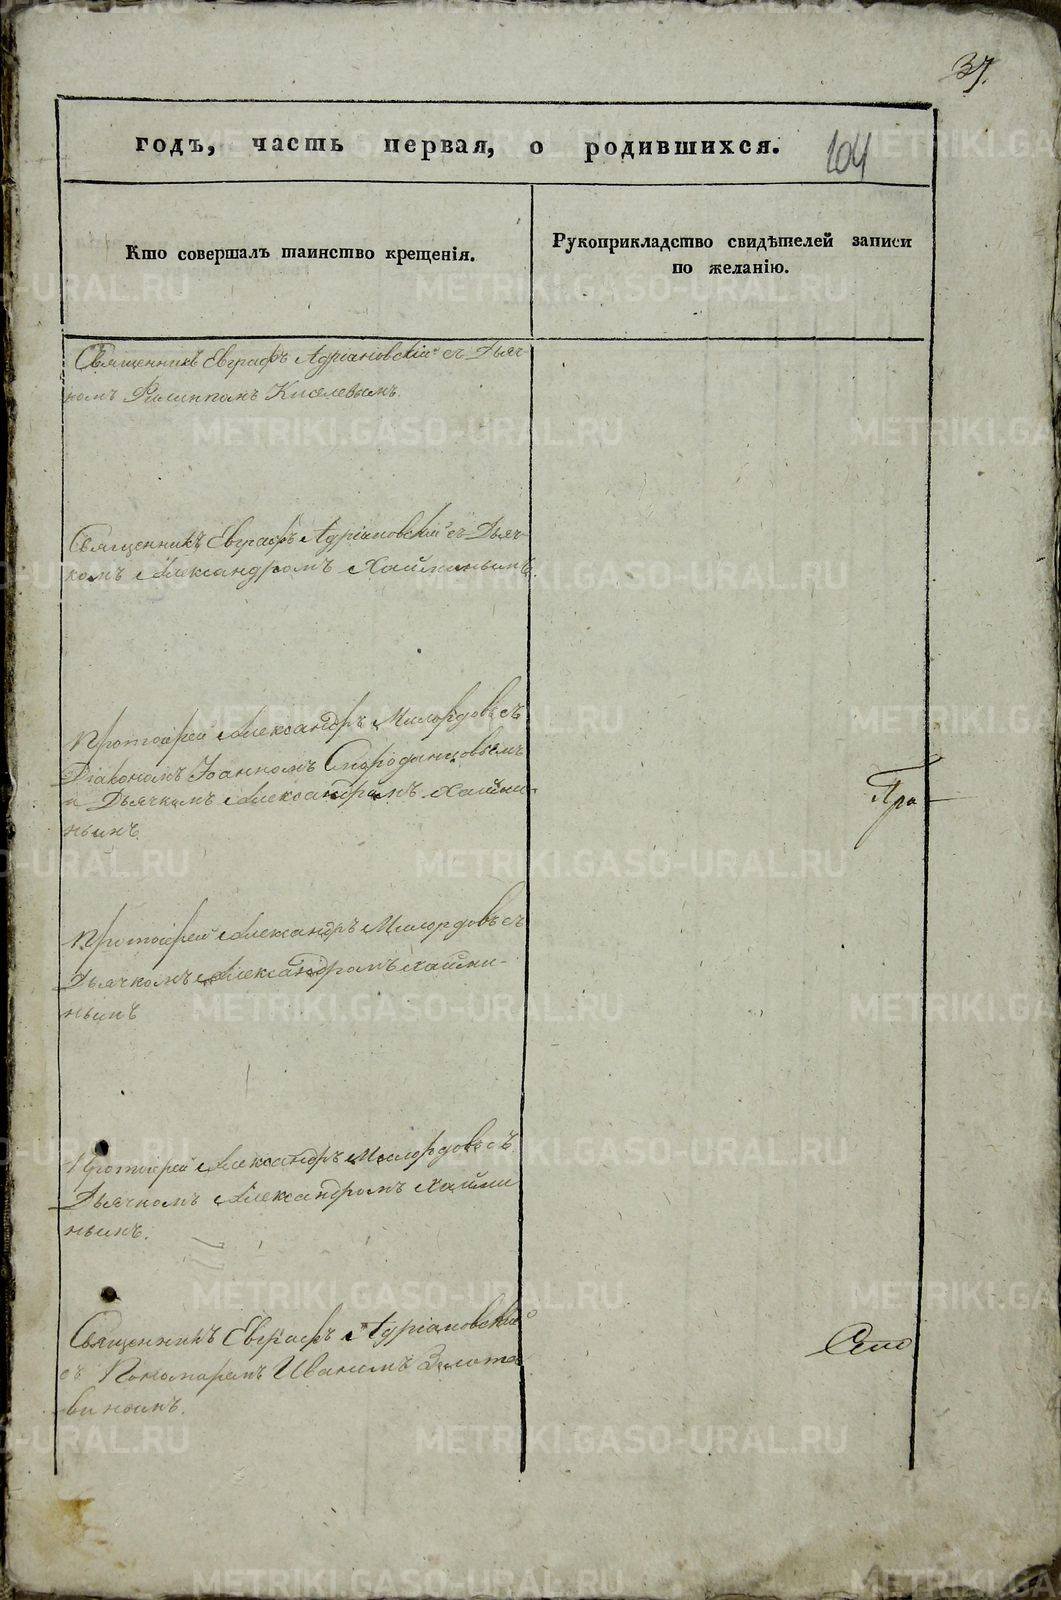 37.
годъ, часть первая, о родившихся.
104
Кто совершалъ таинство крещенія.
Рукоприкладство свидѣтелей записи
по желанію.
Священникъ Евграфъ Адріановскій съ Дьяч-
комъ Филиппомъ Киселевымъ.
Священникъ Евграфъ Адріановскій съ Дьяч-
комъ Александромъ Хайминымъ.
Протоіерей Александръ Милордовъ съ
Діакономъ Іоанномъ Смородинцовымъ
и Дьячкомъ Александромъ Хайми-
нымъ.
Пра-
Протоіерей Александръ Милордовъ съ
Дьячкомъ Александромъ Хайми-
нымъ
Протоіерей Александръ Милордовъ съ
Дьячкомъ Александромъ Хайми
нымъ.
Священникъ Евграфъ Адріановскій
съ Пономаремъ Иваномъ Золота
винымъ.
METRIKI.GASO-URAL.RU